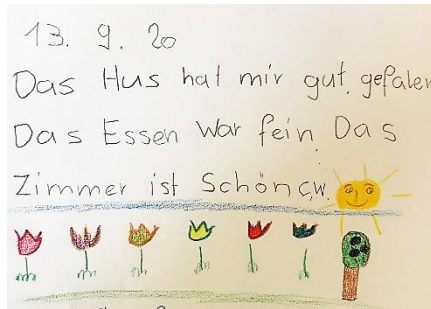 13. 9. 20
Das Hus hat mir gut. gefalen
Das Essen war fein Das
Zimmer ist Schön